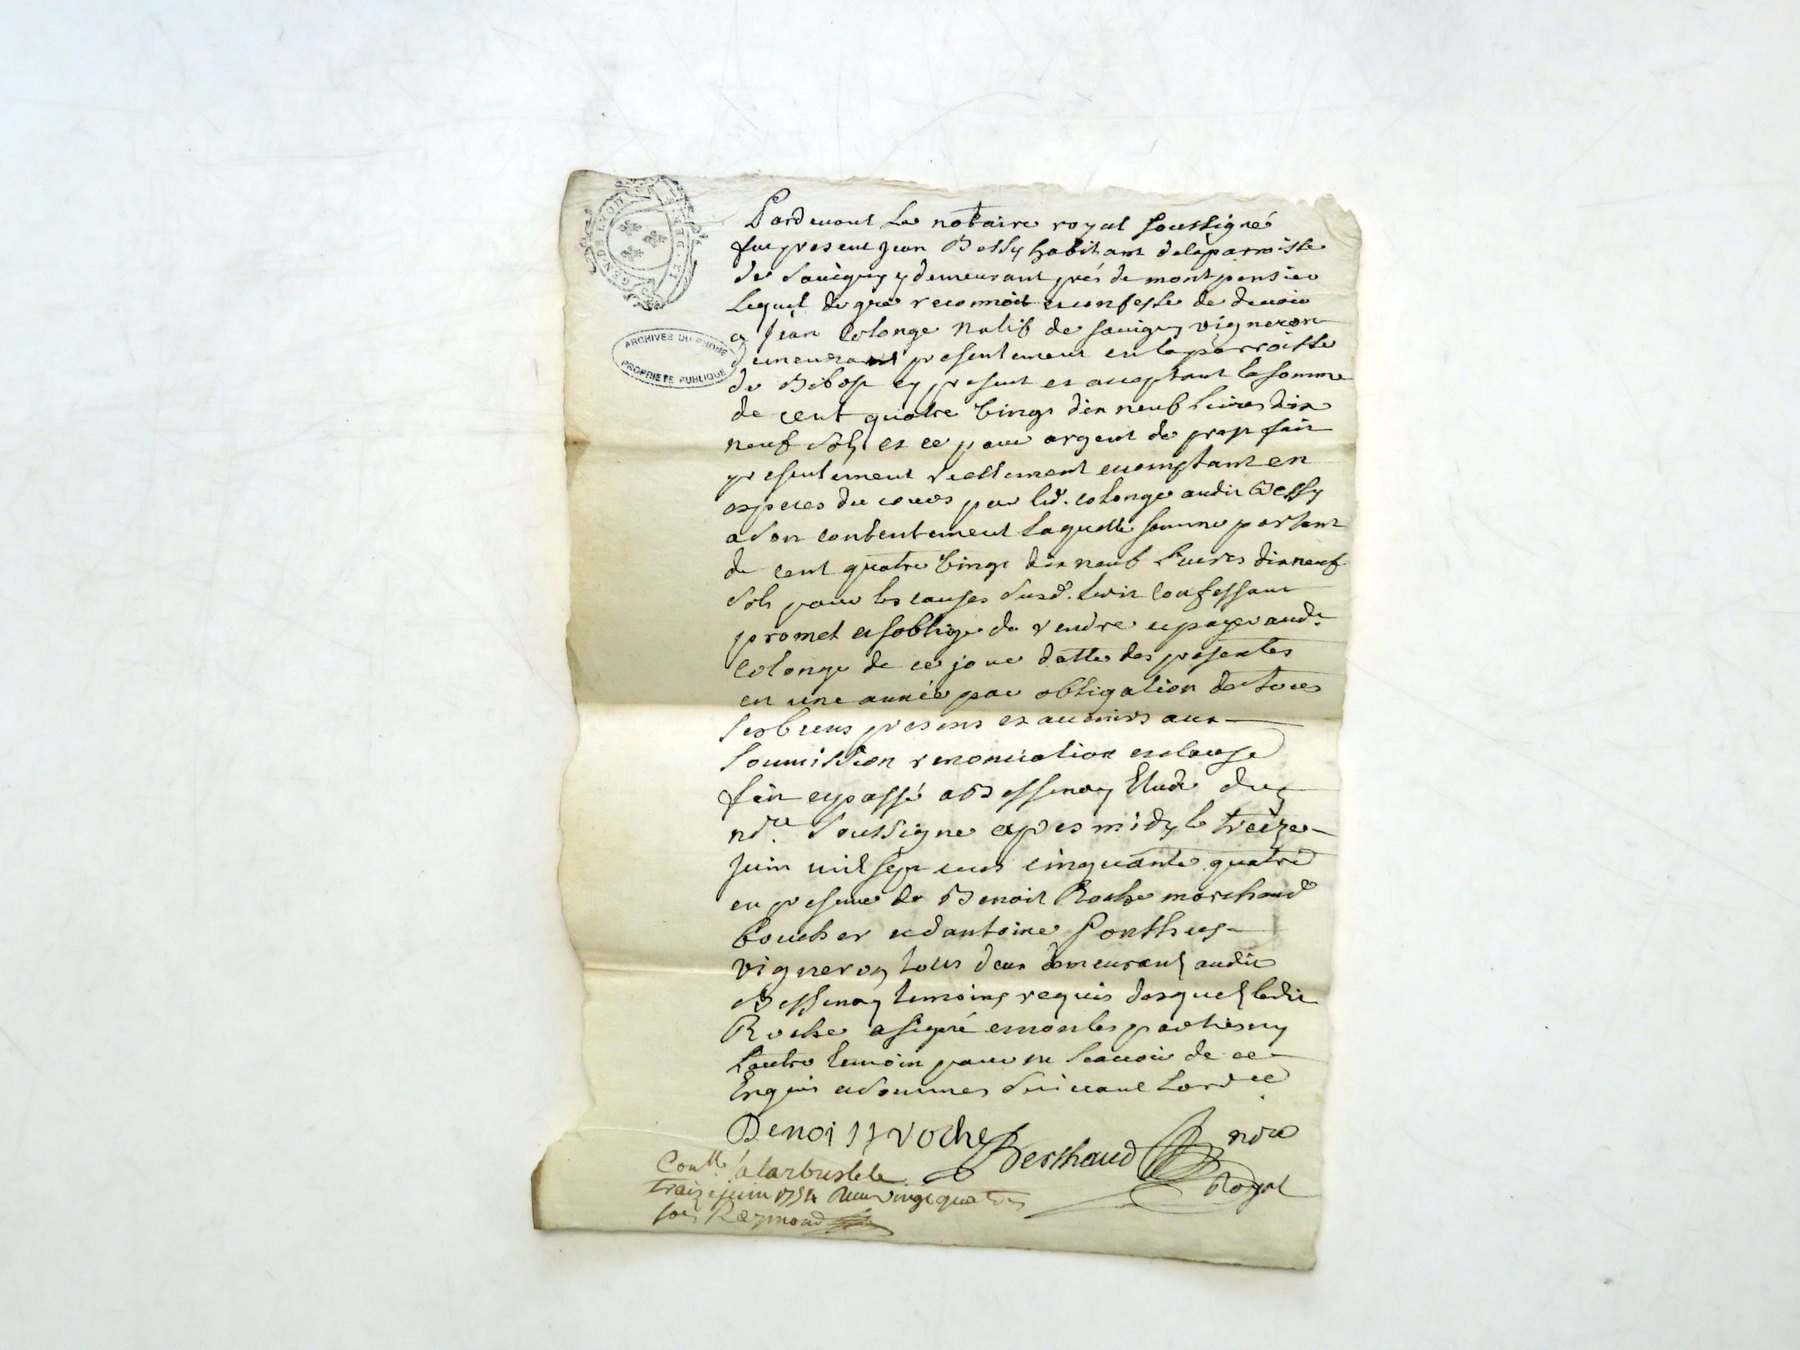 GEN DE LYON
ARCHIVES DU RHONE
PROPRIETE PUBLIQUE
Pardevant Le notaire royal soussigné
fut present Jean Bessy habitant delaparroisse
de Sauigny y demeurant prés de montpensier
Lequel de gré reconnoit et confesse de devoir
a Jean Colonge natif de sauigny vigneron
demeurant presentement en la parroisse
de Bibost cy present et acceptant la somme
de cent quatre vingt dix neuf livres dix
neuf sols et ce pour argent de prest fait
presentement reellement encomptant en
especes du cours par led. colonge audit Bessy
a son contentement laquelle somme portant
de cent quatre vingt dix neuf livres dixneuf
sols pour les causes susd. ledit confessant
promet et soblige de rendre et payer aud.
Colonge de ce jour datte des presentes
en une année par obligation de tous
ses biens presens et auenirs aux
soumission renonciation et clause
fait et passé a Bessenay Etude du
nore. soussigné apres midy le treize
juin mil sept cens cinquante quatre
en presence de Benoit Roche marchand
boucher et dantoine Ponthus
vigneron tous deux demeurans audit
Bessenay temoins requis desquels ledit
Roche a signé et non les parties ny
lautre temoin pour ne scauoir de ce
Enquis et sommés suivant lord.ce
Benoist roche Berthaud nore
Royal
Conllé a larbresle le
treize juin 1754 Reçu vingt quatre
sols Raymond